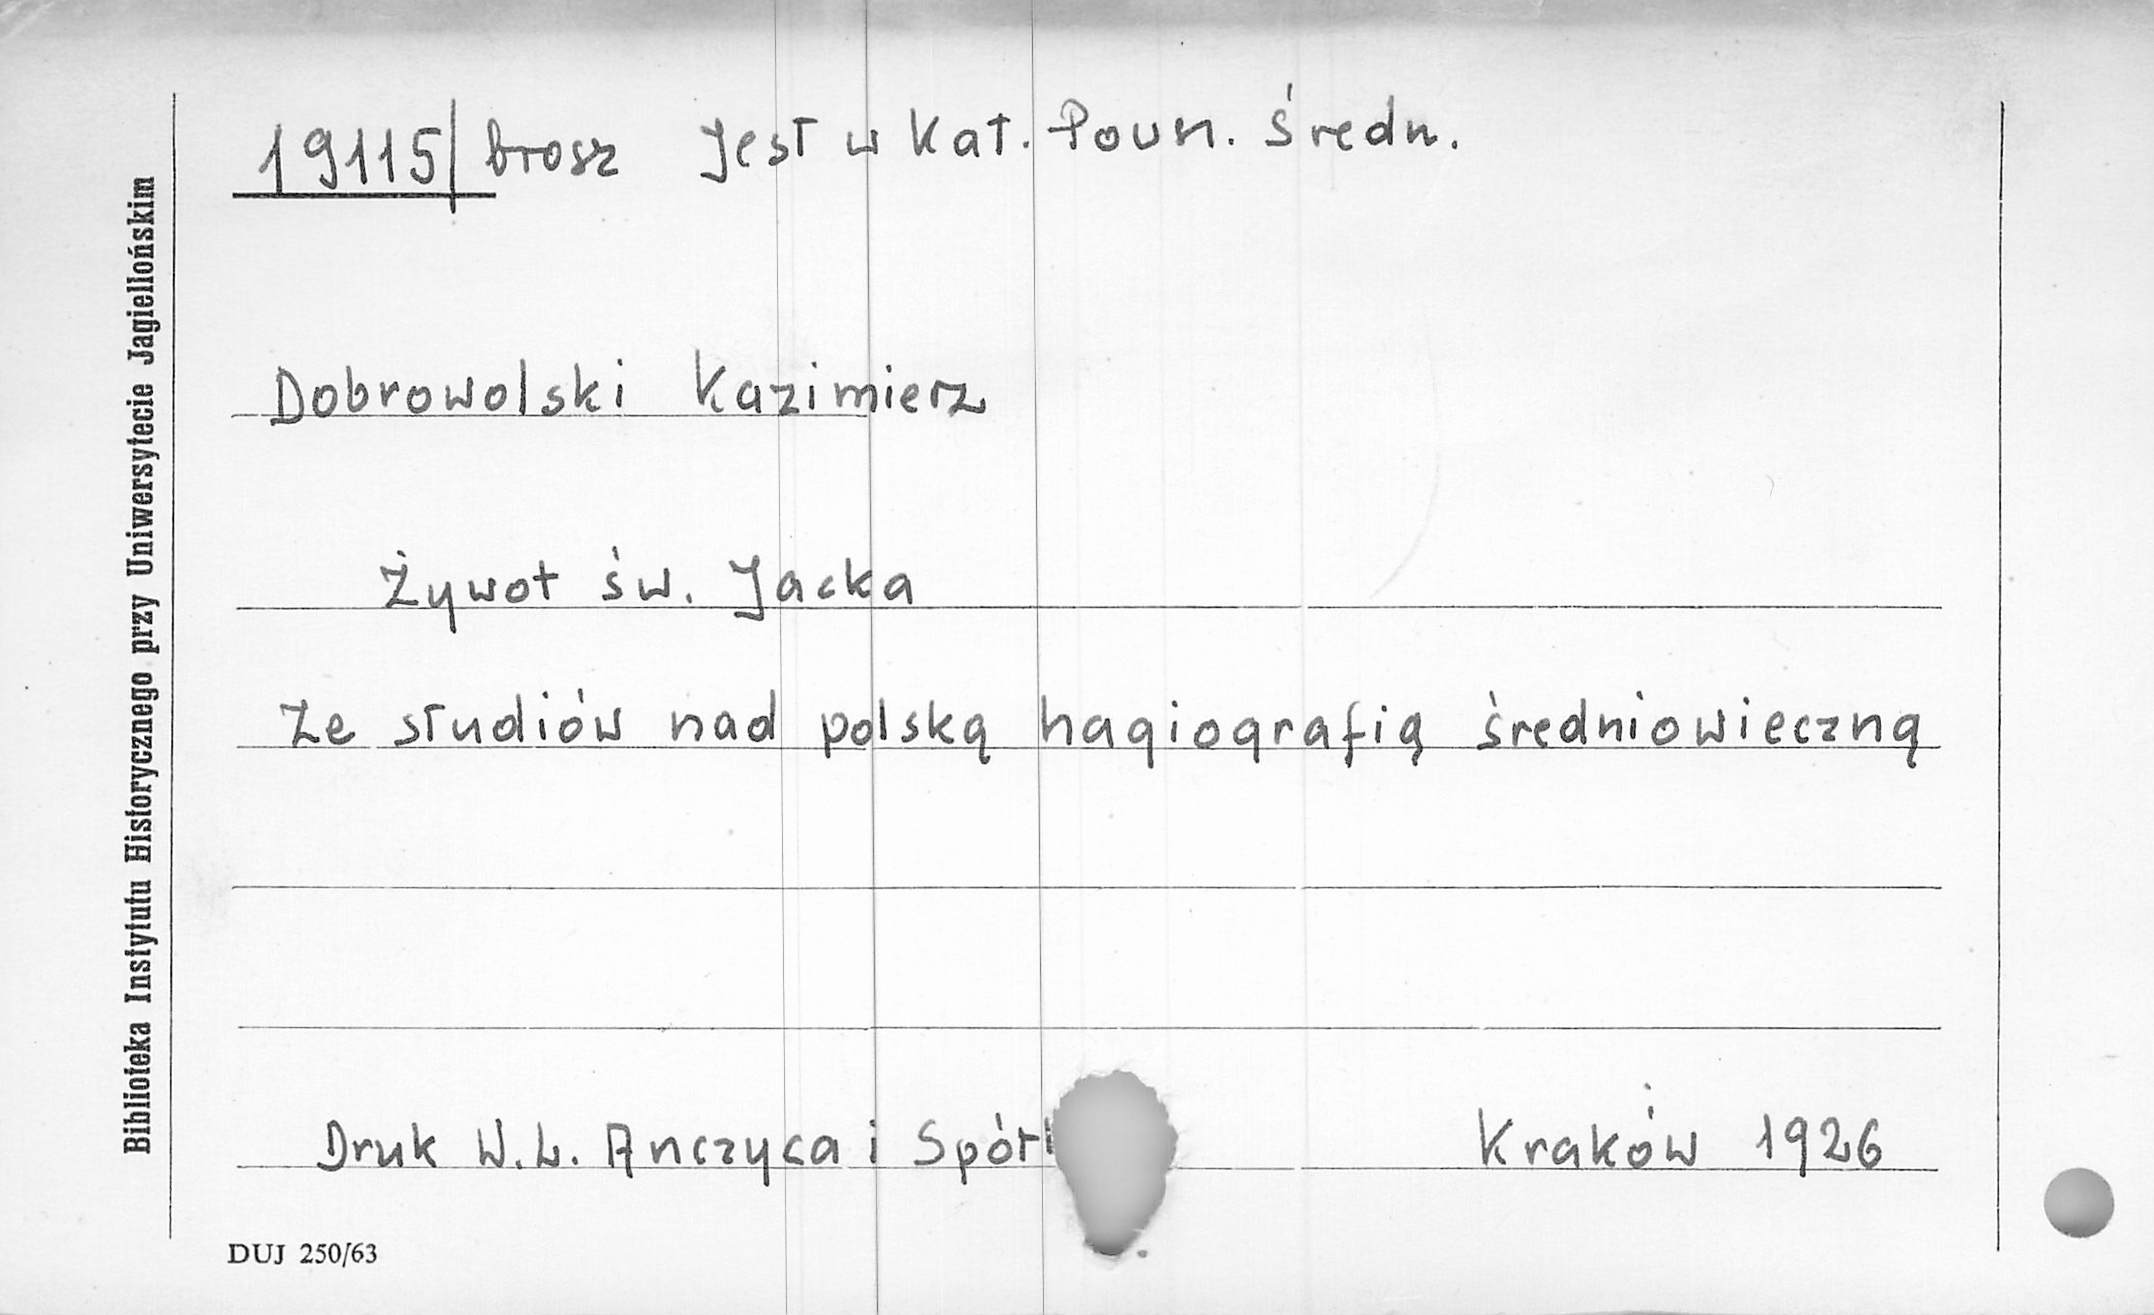 19115/brosz Jest w Kat. Poun. Średn.
Dobrowolski Kazimierz
Żywot św. Jacka
Ze studiów nad polską hagiografią średniowieczną
Druk W.L. Anczyca i Spół Kraków 1926
DUJ 250/63
Biblioteka Instytutu Historycznego przy Uniwersytecie Jagiellońskim